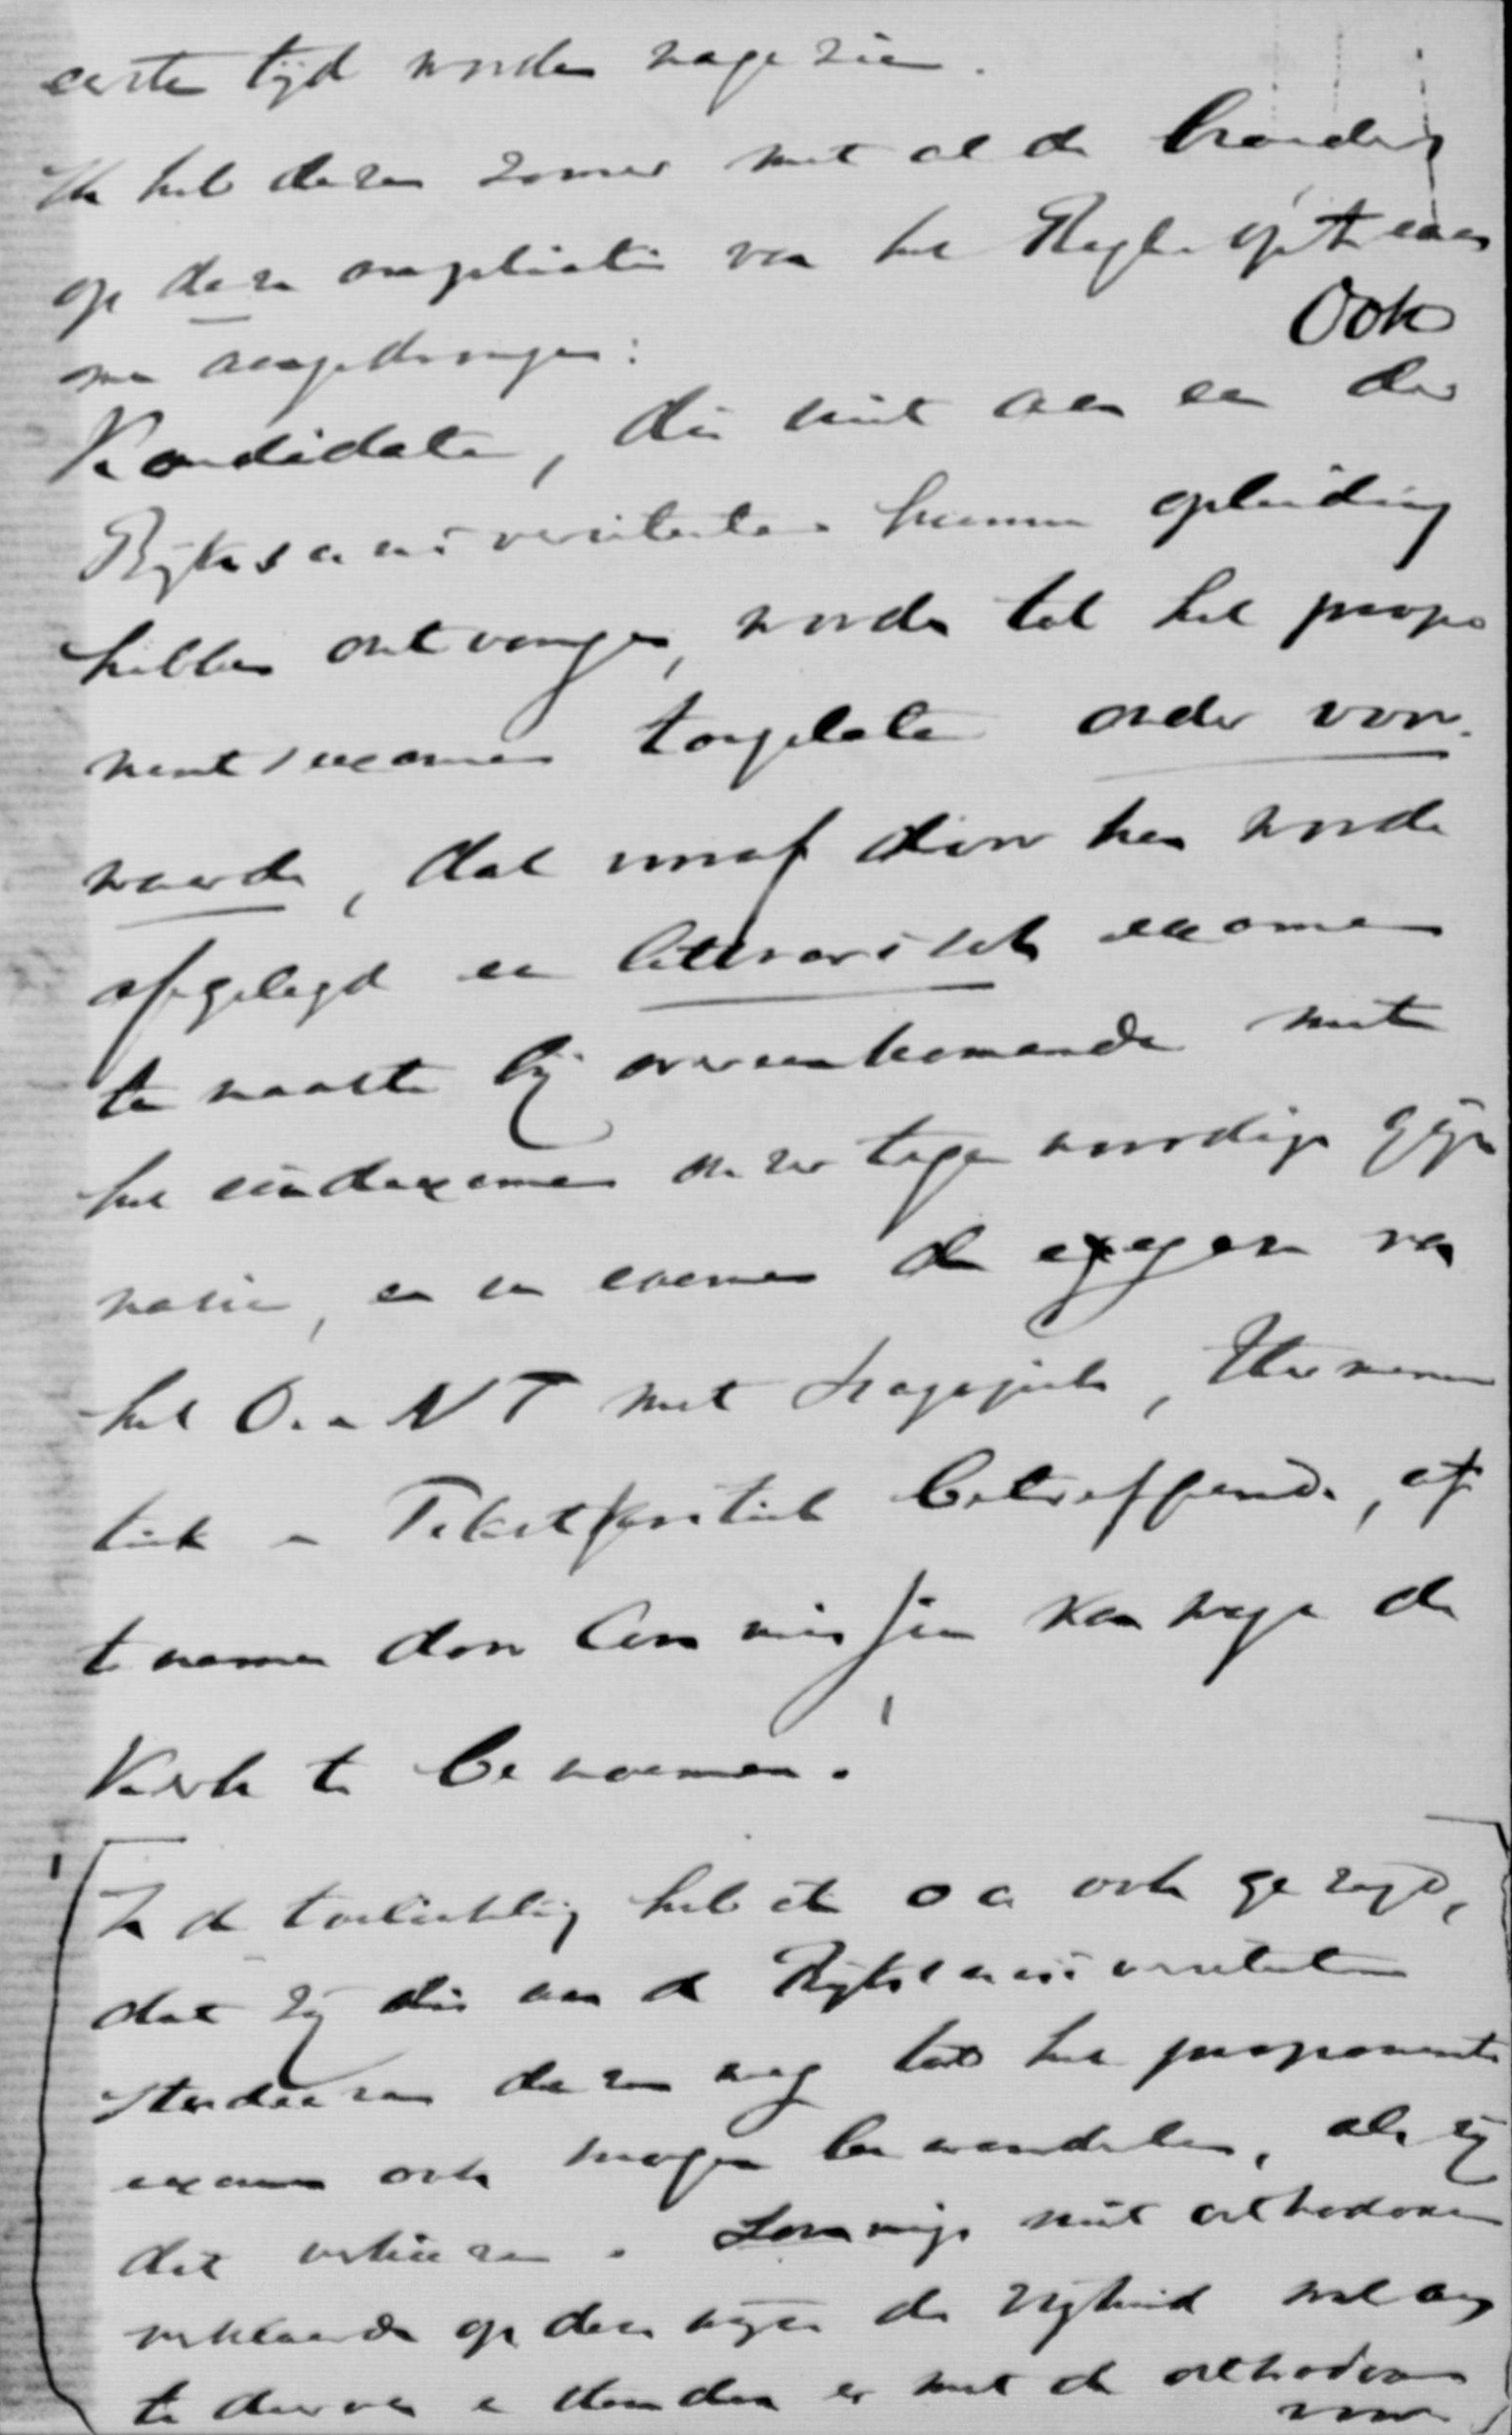 eerste tijd worden nagezien.
Ik heb dezen zomer met al de broeders
op deze ampliatie van het Regl. op 't exa
men aangedrongen: Ook
Kandidaten, die niet aan een der
Rijksuniversiteiten hunne opleiding
hebben ontvangen, worden tot het propo
nentsexamen toegelaten onder voor-
waarde, dat vooraf door hen worde
afgelegd een litterarisch examen
ten naaste bij overeenkomende met
het eindexamen onzer tegenwoordige gym
nasia, en een examen de exegese van
het O. en N T met Isagogiek, Hermeneu
tiek en Tekstkritiek betreffende, af
te nemen door Commissien vanwege de
Kerk te benoemen.
In de toelichting heb ik o a ook gezegd,
dat zij die aan de Rijksuniversiteiten
studeeren dezen weg tot het proponents
examen ook mogen bewandelen, als zij
dit verkiezen. Sommige niet orthodoxen
verklaarden op deze wijze de vrijheid wel aan
te durven en stonden er met de orthodoxen
voor